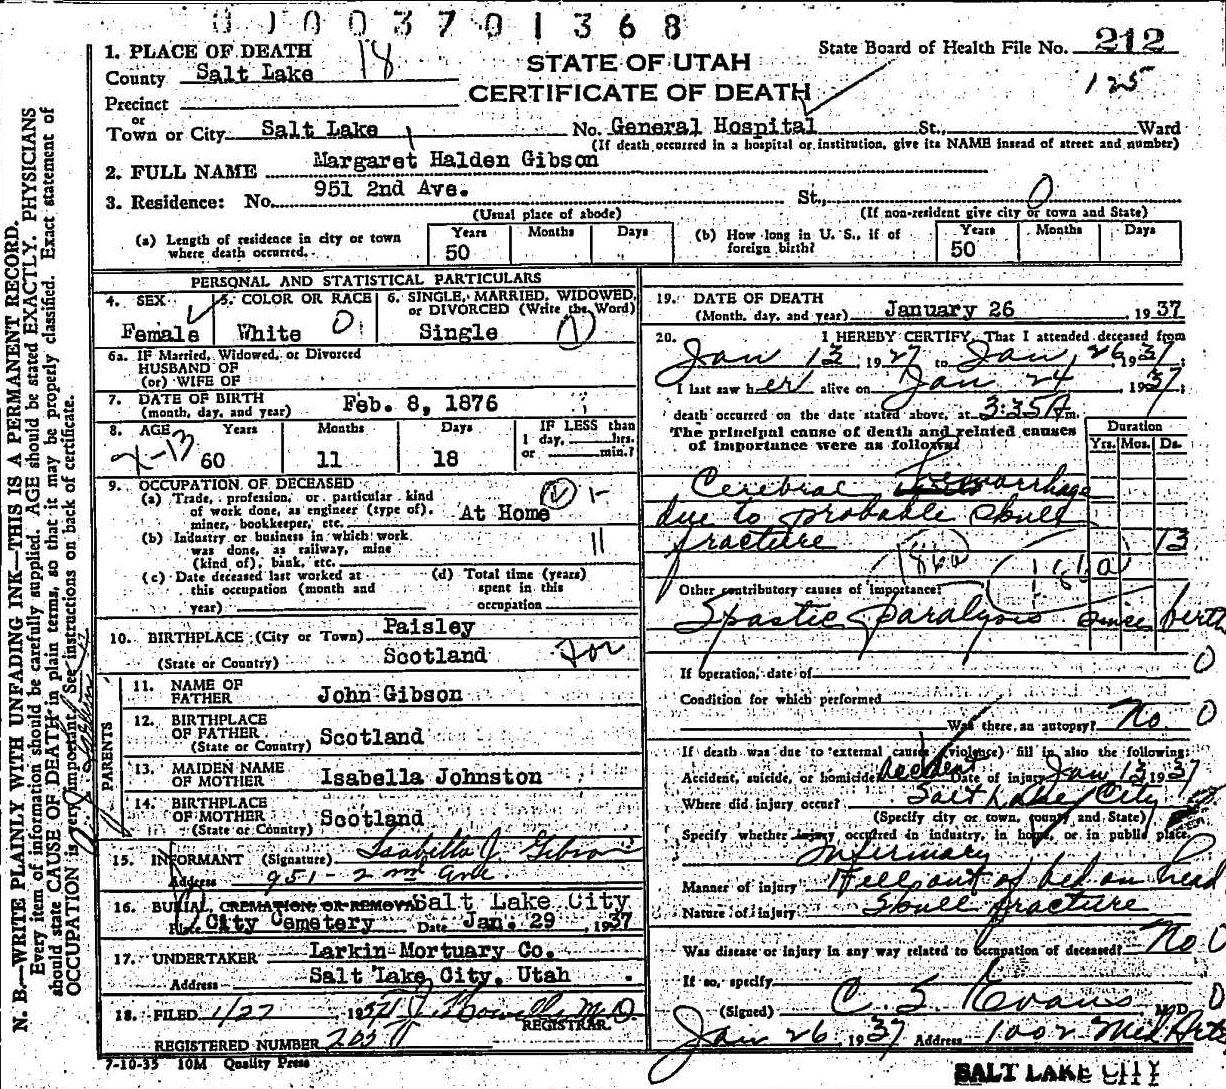 0 0 0 3 7 0 1 3 6 8
State Board of Health File No. 212
125
STATE OF UTAH
CERTIFICATE OF DEATH
1. PLACE OF DEATH
County Salt Lake 18
Precinct
or
Town or City Salt Lake No. General Hospital St., Ward
(If death occurred in a hospital or institution, give its NAME insead of street and number)
2. FULL NAME Margaret Halden Gibson
3. Residence: No. 951 2nd Ave. St., 0
(Usual place of abode) (If non-resident give city or town and State)
(a) Length of residence in city or town where death occurred. Years 50 Months Days
(b) How long in U. S., if of foreign birth? Years 50 Months Days
PERSONAL AND STATISTICAL PARTICULARS
4. SEX Female
5. COLOR OR RACE White 0
6. SINGLE, MARRIED, WIDOWED, or DIVORCED (Write the Word) Single 1
6a. IF Married, Widowed, or Divorced
HUSBAND OF
(or) WIFE OF
7. DATE OF BIRTH
(month, day, and year) Feb. 8, 1876
8. AGE Years 60 Months 11 Days 18
IF LESS than
1 day, hrs.
or min.?
9. OCCUPATION OF DECEASED
(a) Trade, profession, or particular kind
of work done, as engineer (type of),
miner, bookkeeper, etc. At Home
(b) Industry or business in which work
was done, as railway, mine
(kind of), bank, etc. 11
(c) Date deceased last worked at
this occupation (month and
year)
(d) Total time (years)
spent in this
occupation
10. BIRTHPLACE (City or Town) Paisley
(State or Country) Scotland For
PARENTS
11. NAME OF
FATHER John Gibson
12. BIRTHPLACE
OF FATHER
(State or Country) Scotland
13. MAIDEN NAME
OF MOTHER Isabella Johnston
14. BIRTHPLACE
OF MOTHER
(State or Country) Scotland
15. INFORMANT (Signature) Isabella J Gibson
Address 951 - 2nd Ave
16. BURIAL, CREMATION OR REMOVAL Salt Lake City
Place City Cemetery Date Jan. 29, 1937
17. UNDERTAKER Larkin Mortuary Co.
Address Salt Lake City, Utah
18. FILED 1/27, 19 M.D.
REGISTRAR.
REGISTERED NUMBER
7-10-35 10M Quality Press
19. DATE OF DEATH
(Month, day, and year) January 26, 1937
20. I HEREBY CERTIFY, That I attended deceased from
Jan 13, 1937 to Jan 26, 1937;
I last saw her alive on Jan 24 1937;
death occurred on the date stated above, at 3:35 A m.
The principal cause of death and related causes
of importance were as follows:
Duration
Yrs. Mos. Ds.
Cerebral Hemorrhage
due to probable skull
fracture 13
186a 186a
Other contributory causes of importance:
Spastic paralysis since birth
If operation, date of 0
Condition for which performed
Was there an autopsy? No. 0
If death was due to external causes (violence) fill in also the following:
Accident, suicide, or homicide Accident Date of injury Jan 13 1937
Where did injury occur? Salt Lake City
(Specify city or town, county and State)
Specify whether injury occurred in industry, in home, or in public place.
Infirmary
Manner of injury Fell out of bed on head
Nature of injury Skull fracture
Was disease or injury in any way related to occupation of deceased? No 0
If so, specify
(Signed) C. S. Evans M.D. 0
Jan 26 1937 Address 1002 Med Arts
SALT LAKE CITY
N. B.—WRITE PLAINLY WITH UNFADING INK—THIS IS A PERMANENT RECORD.
Every item of information should be carefully supplied. AGE should be stated EXACTLY. PHYSICIANS
should state CAUSE OF DEATH in plain terms, so that it may be properly classified. Exact statement of
OCCUPATION is very important. See instructions on back of certificate.